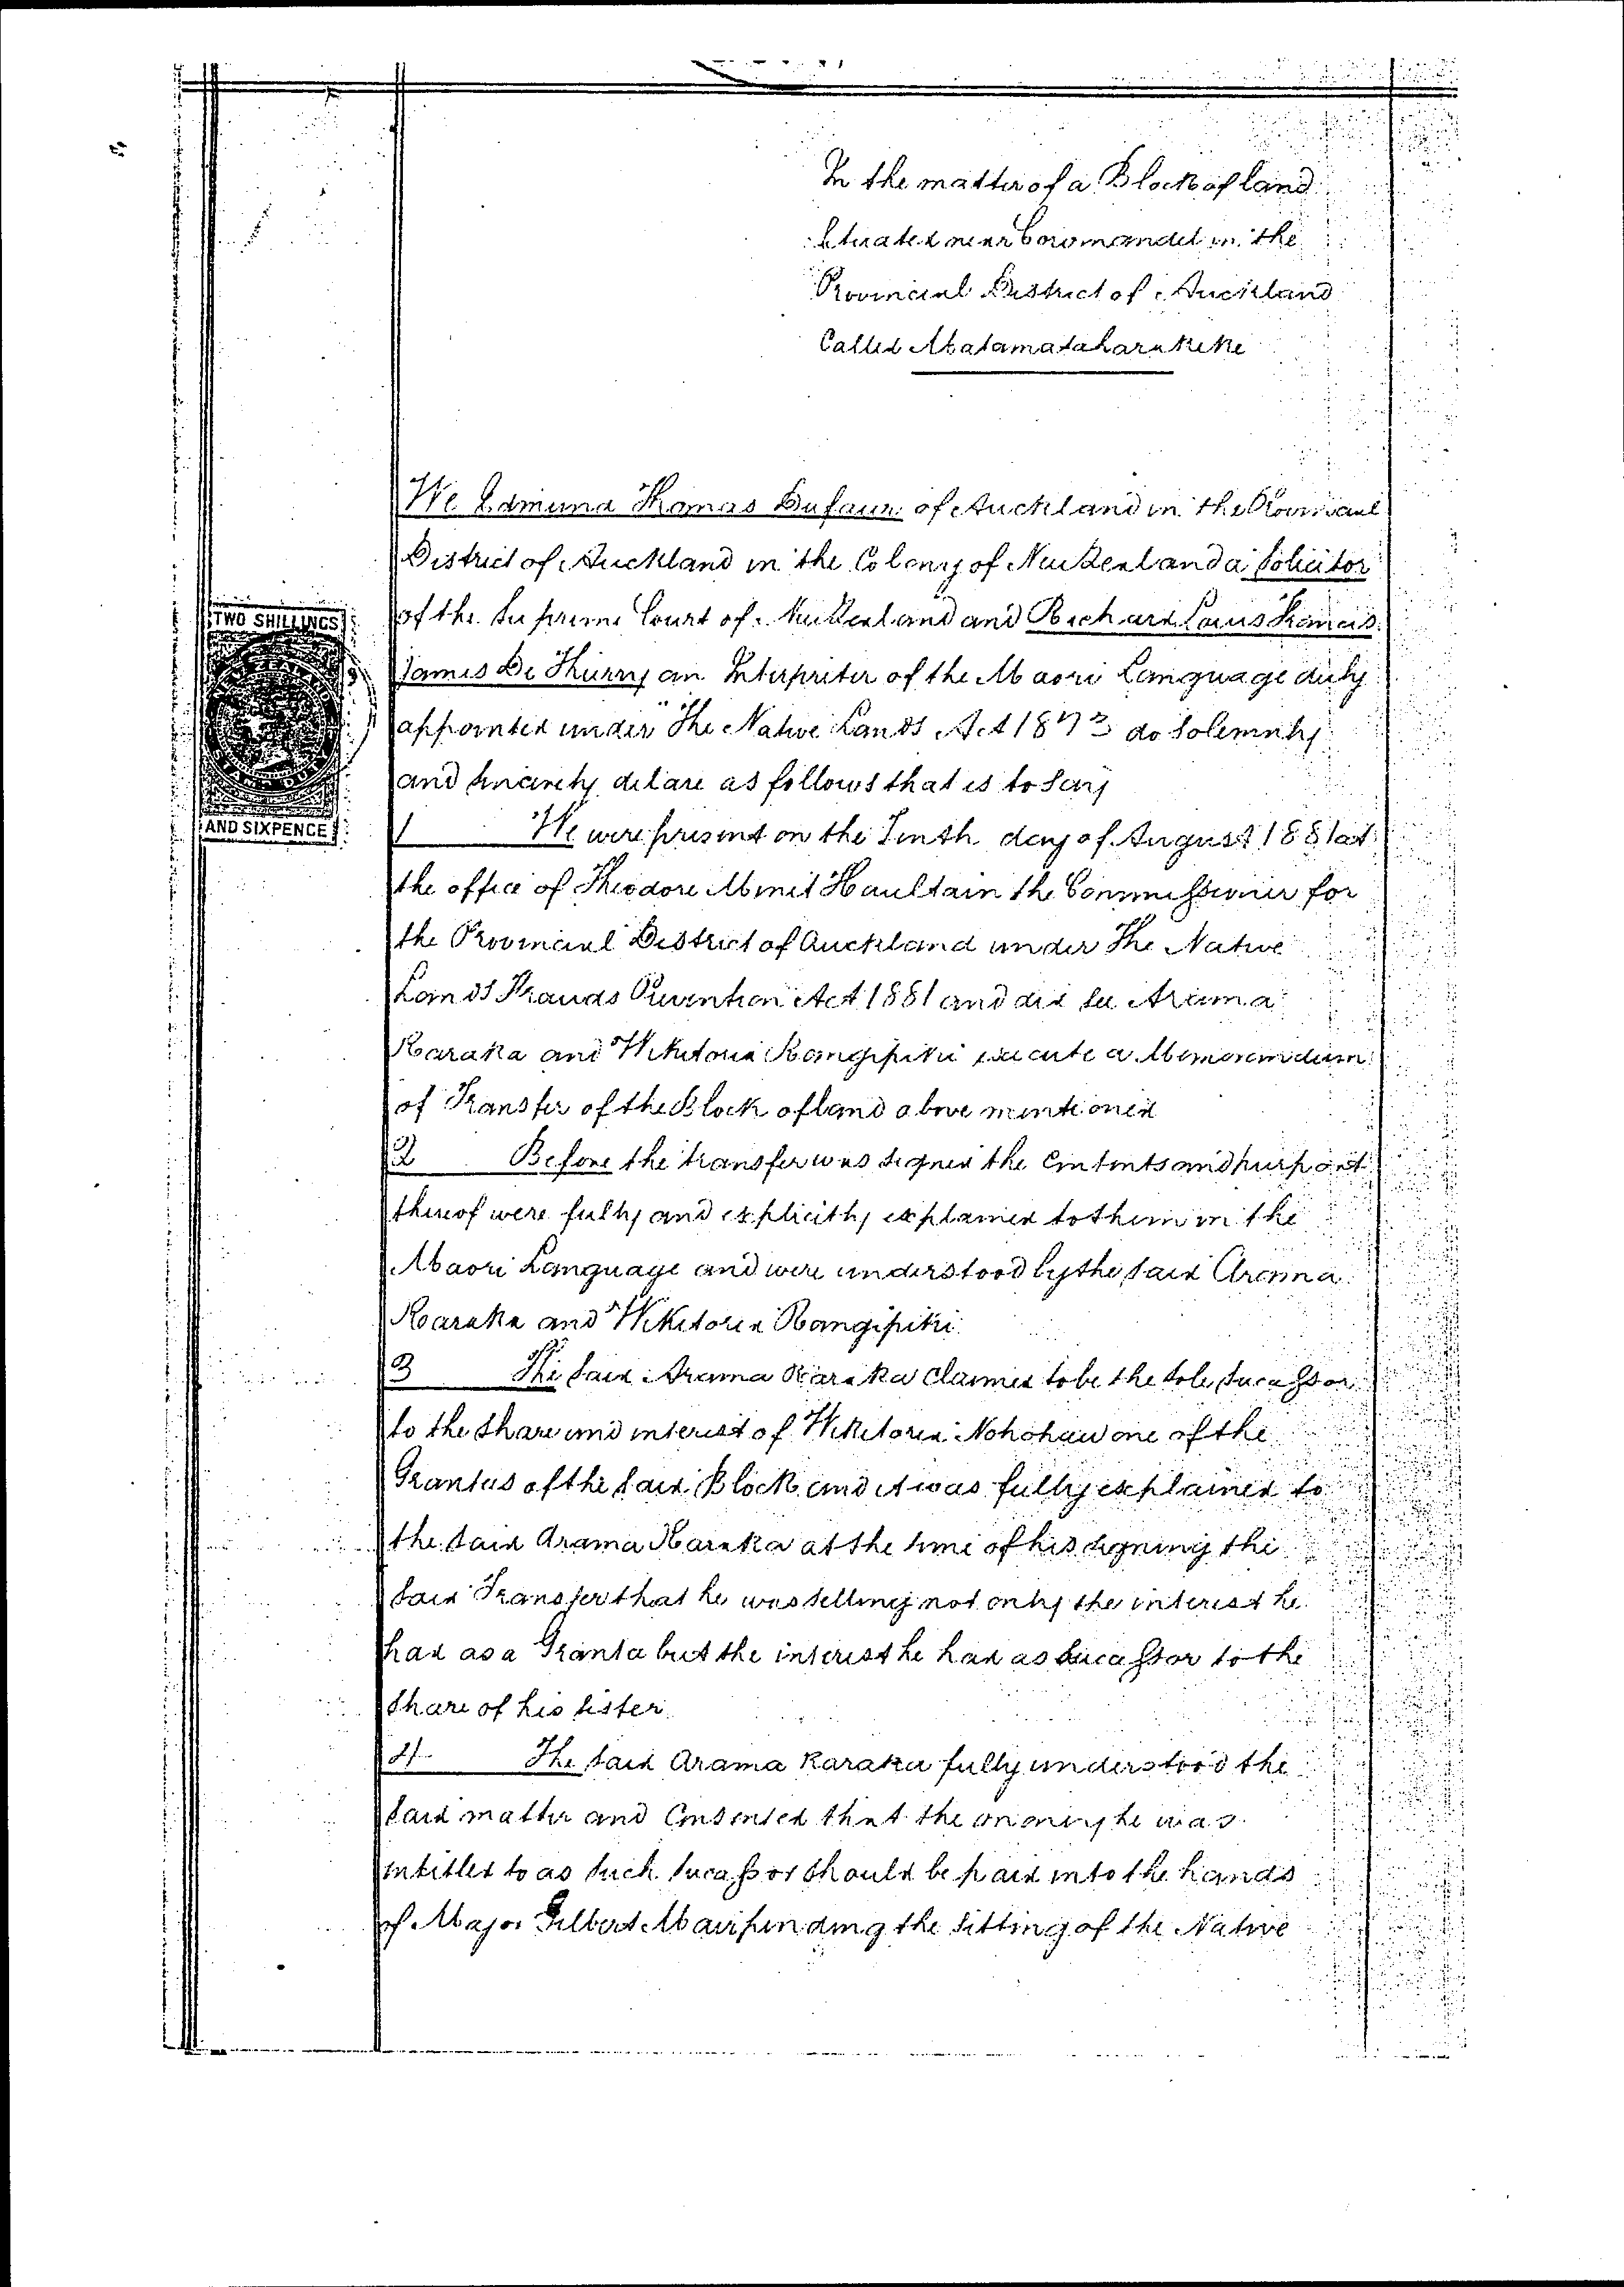 In the matter of a Block of land
Situated near Coromandel in the
Provincial District of Auckland
Called Matamataharakeke
We Edmund Thomas Dufaur of Auckland in the Provincial
District of Auckland in the Colony of New Zealand a Solicitor
of the Supreme Court of New Zealand and Richard Louis Francis
TWO SHILLINGS
James De Thierry an Interpreter of the Maori Language duly
appointed under "The Native Lands Act 1873 do Solemnly
and Sincerely declare as follows that is to Say
AND SIXPENCE
1 We were present on the Tenth day of August 1881 at
the office of Theodore Minet Haultain the Commissioner for
the Provincial District of Auckland under The Native
Lands Frauds Prevention Act 1881 and did See Arama
Karaka and Wikitoria Rangipiki execute a Memorandum
of Transfer of the Block of land above mentioned
2 Before the transfer was Signed the Contents and purport
thereof were fully and explicitly explained to them in the
Maori Language and were understood by the Said Arama
Karaka and Wikitoria Rangipiki
3 The Said Arama Karaka Claimed to be the Sole Successor
to the Share and interest of Wikitoria Nohohau one of the
Grantees of the Said Block and it was fully explained to
the Said Arama Karaka at the time of his Signing the
Said Transfer that he was Selling not only the interest he
had as a Grantee but the interest he had as Successor to the
Share of his Sister
4 The Said Arama Karaka fully understood the
Said matter and Consented that the money he was
intitled to as Such Successor Should be paid into the hands
of Major Gilbert Mair pending the Sitting of the Native